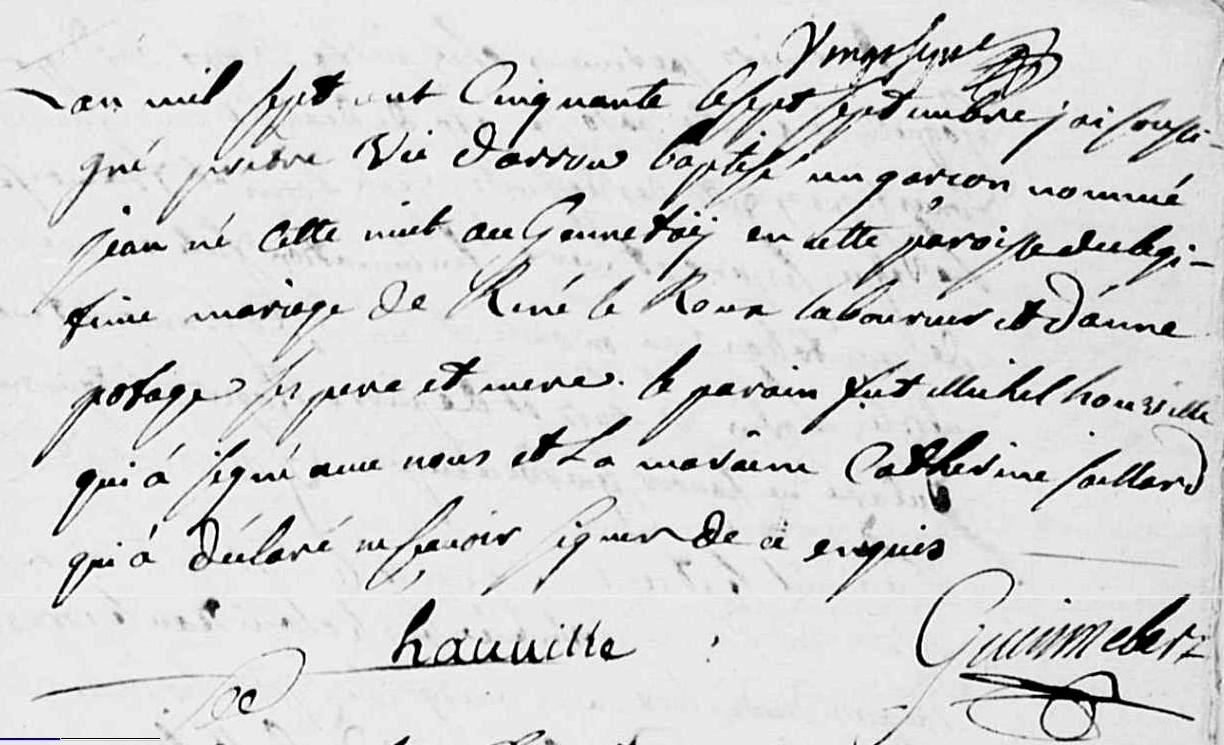 Vingt sept
Lan mil sept cent Cinquante le sept septembre j'ai soussi-
gné prêtre Vic d'arrou baptisé un garçon nommé
jean né cette nuit au Gennetaÿ en cette paroisse du legi-
time mariage de René le Roux laboureur et d'anne
potage ses pere et mere. le parain fut Michel houville
qui à signé avec nous et La maraine Catherine saillard
qui à déclaré ne sçavoir signer de ce enquis
hauville